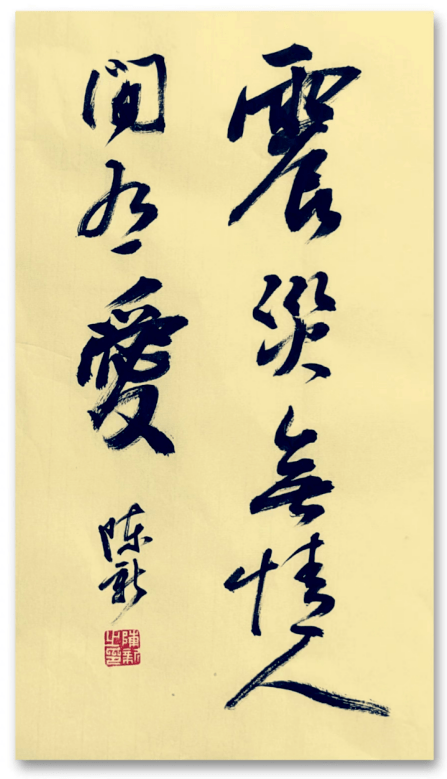 震災無情人
間有愛
陈新
陳新
之印